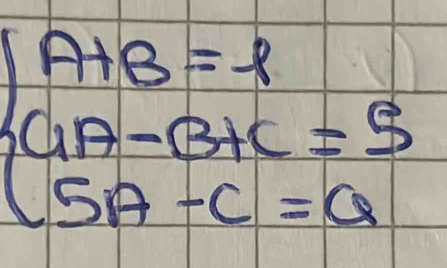 A+B = 1
4A-B+C = 5
5A-C =